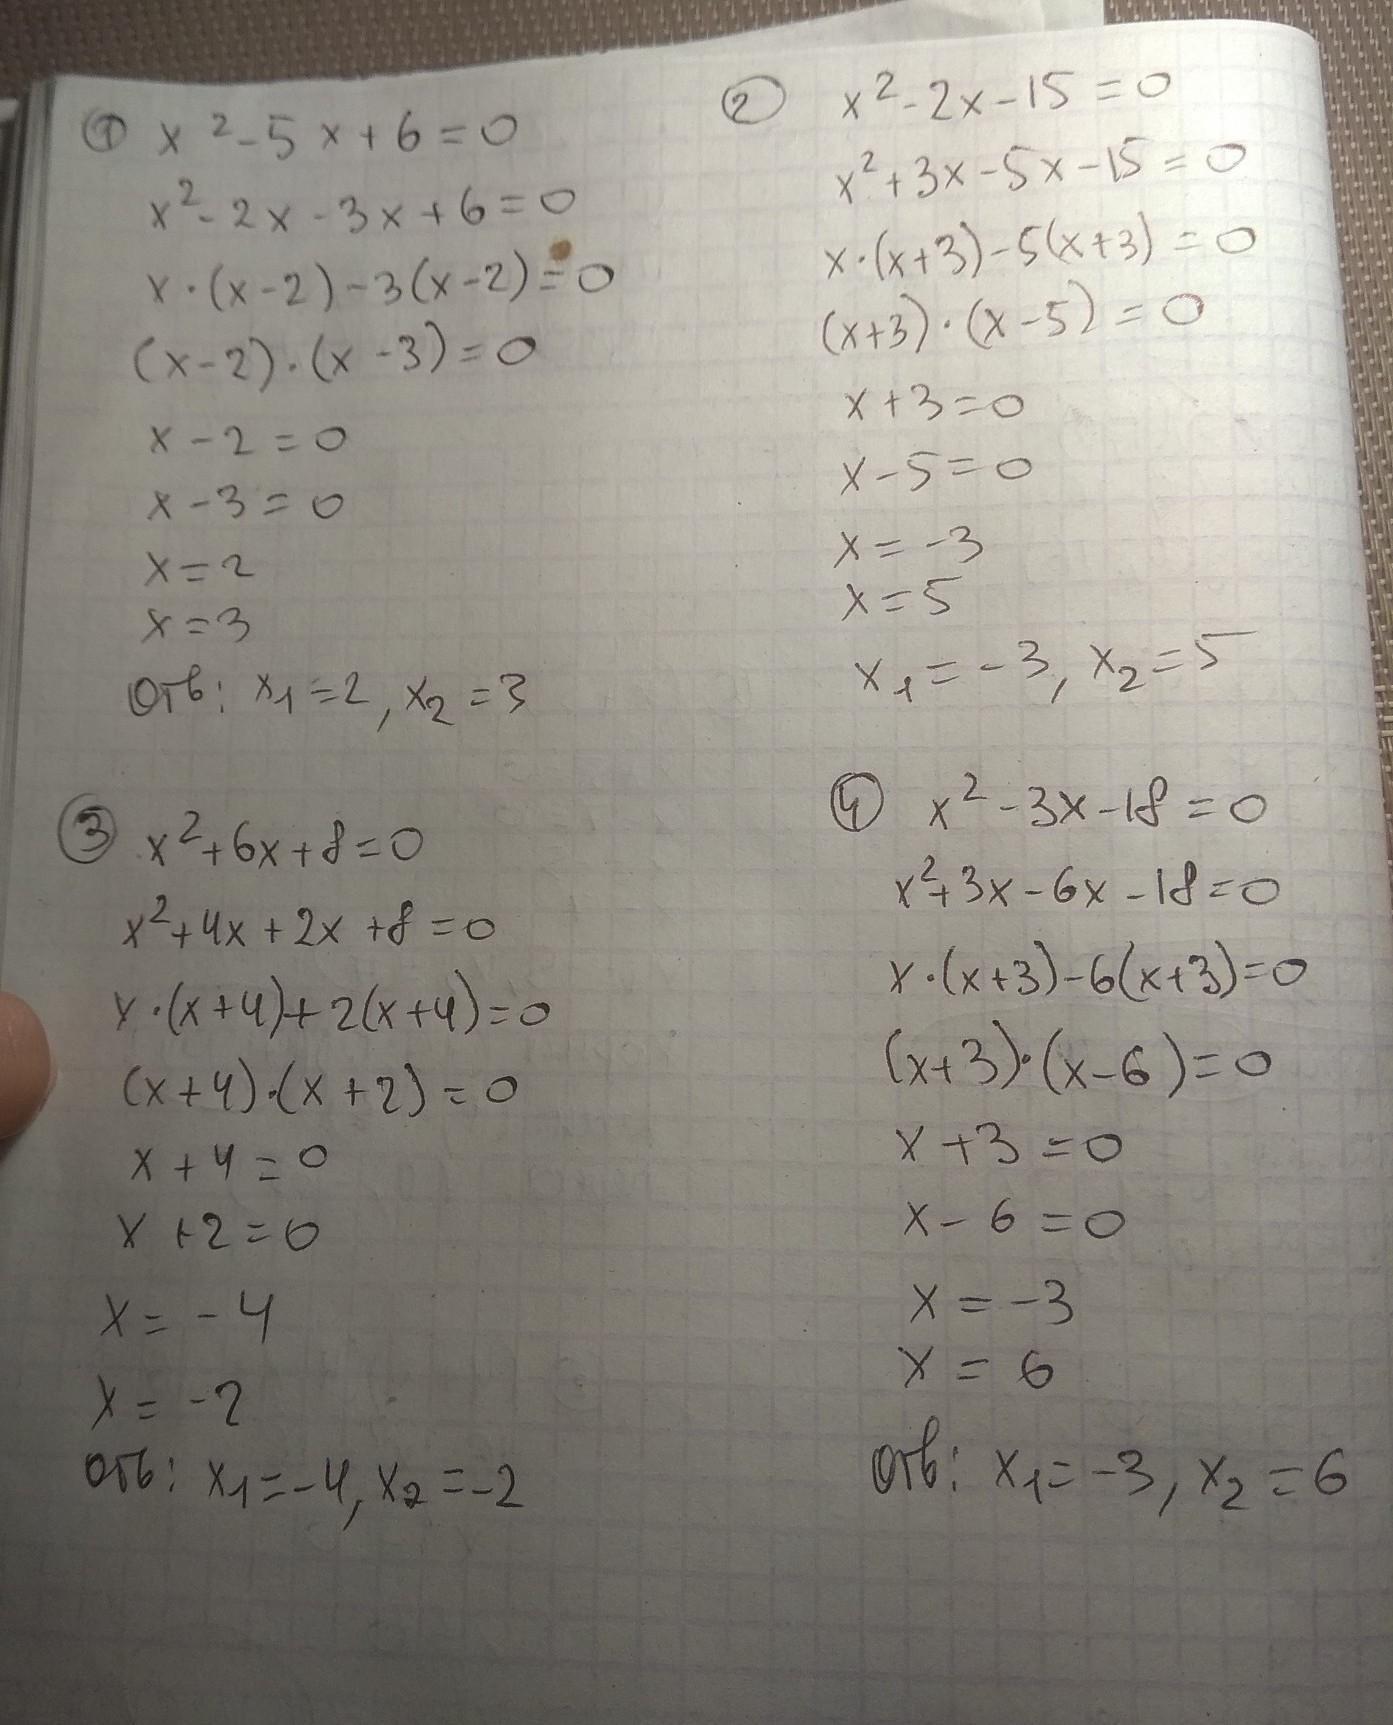 ① x²-5x+6=0
x²-2x-3x+6=0
x·(x-2)-3(x-2)=0
(x-2)·(x-3)=0
x-2=0
x-3=0
x=2
x=3
Отв: x₁=2, x₂=3
② x²-2x-15=0
x²+3x-5x-15=0
x·(x+3)-5(x+3)=0
(x+3)·(x-5)=0
x+3=0
x-5=0
x=-3
x=5
x₁=-3, x₂=5
③ x²+6x+8=0
x²+4x+2x+8=0
x·(x+4)+2(x+4)=0
(x+4)·(x+2)=0
x+4=0
x+2=0
x=-4
x=-2
Отв: x₁=-4, x₂=-2
④ x²-3x-18=0
x²+3x-6x-18=0
x·(x+3)-6(x+3)=0
(x+3)·(x-6)=0
x+3=0
x-6=0
x=-3
x=6
Отв: x₁=-3, x₂=6